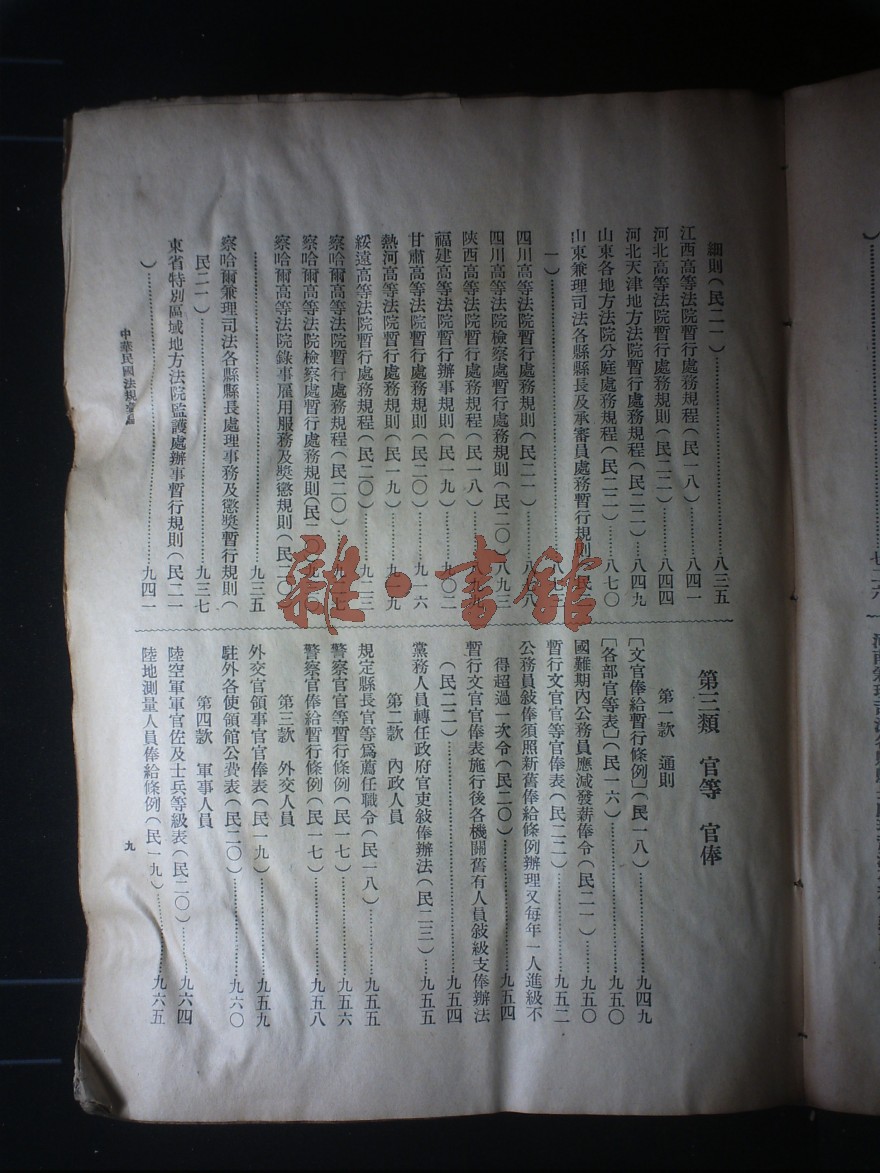 細則(民二一)……八三五
江西高等法院暫行處務規程(民一八)……八四一
河北高等法院暫行處務規則(民二二)……八四四
河北天津地方法院暫行處務規程(民二二)……八四九
山東各地方法院分庭處務規程(民二二)……八七〇
山東兼理司法各縣縣長及承審員處務暫行規則(民二
一)……八七
四川高等法院暫行處務規則(民二一)……八
四川高等法院檢察處暫行處務規則(民二〇)八九三
陝西高等法院暫行處務規程(民一八)……八九
福建高等法院暫行辦事規則(民一九)……九〇二
甘肅高等法院暫行處務規則(民二〇)……九一六
熱河高等法院暫行處務規則(民一九)……九一九
綏遠高等法院暫行處務規程(民二〇)……九二三
察哈爾高等法院暫行處務規程(民二〇)……九
察哈爾高等法院檢察處暫行處務規則(民二〇)九
察哈爾高等法院錄事雇用服務及獎懲規則(民二〇)
……九三五
察哈爾兼理司法各縣縣長處理事務及懲獎暫行規則(
民二一)……九三七
東省特別區域地方法院監護處辦事暫行規則(民二一
)……九四一
第三類 官等 官俸
第一款 通則
[文官俸給暫行條例](民一八)……九四九
[各部官等表](民一六)……九五〇
國難期內公務員應減發薪俸令(民二一)……九五〇
暫行文官官等官俸表(民二二)……九五二
公務員敍俸須照新舊俸給條例辦理又每年一人進級不
得超過一次令(民二〇)……九五四
暫行文官官俸表施行後各機關舊有人員敍級支俸辦法
(民二二)……九五四
黨務人員轉任政府官吏敍俸辦法(民二三)……九五五
第二款 內政人員
規定縣長官等爲薦任職令(民一八)……九五五
警察官官等暫行條例(民一七)……九五六
警察官俸給暫行條例(民一七)……九五八
第三款 外交人員
外交官領事官官俸表(民一九)……九五九
駐外各使領館公費表(民二〇)……九六〇
第四款 軍事人員
陸空軍軍官佐及士兵等級表(民二〇)……九六四
陸地測量人員俸給條例(民一九)……九六五
中華民國法規彙編
九
雜·書館